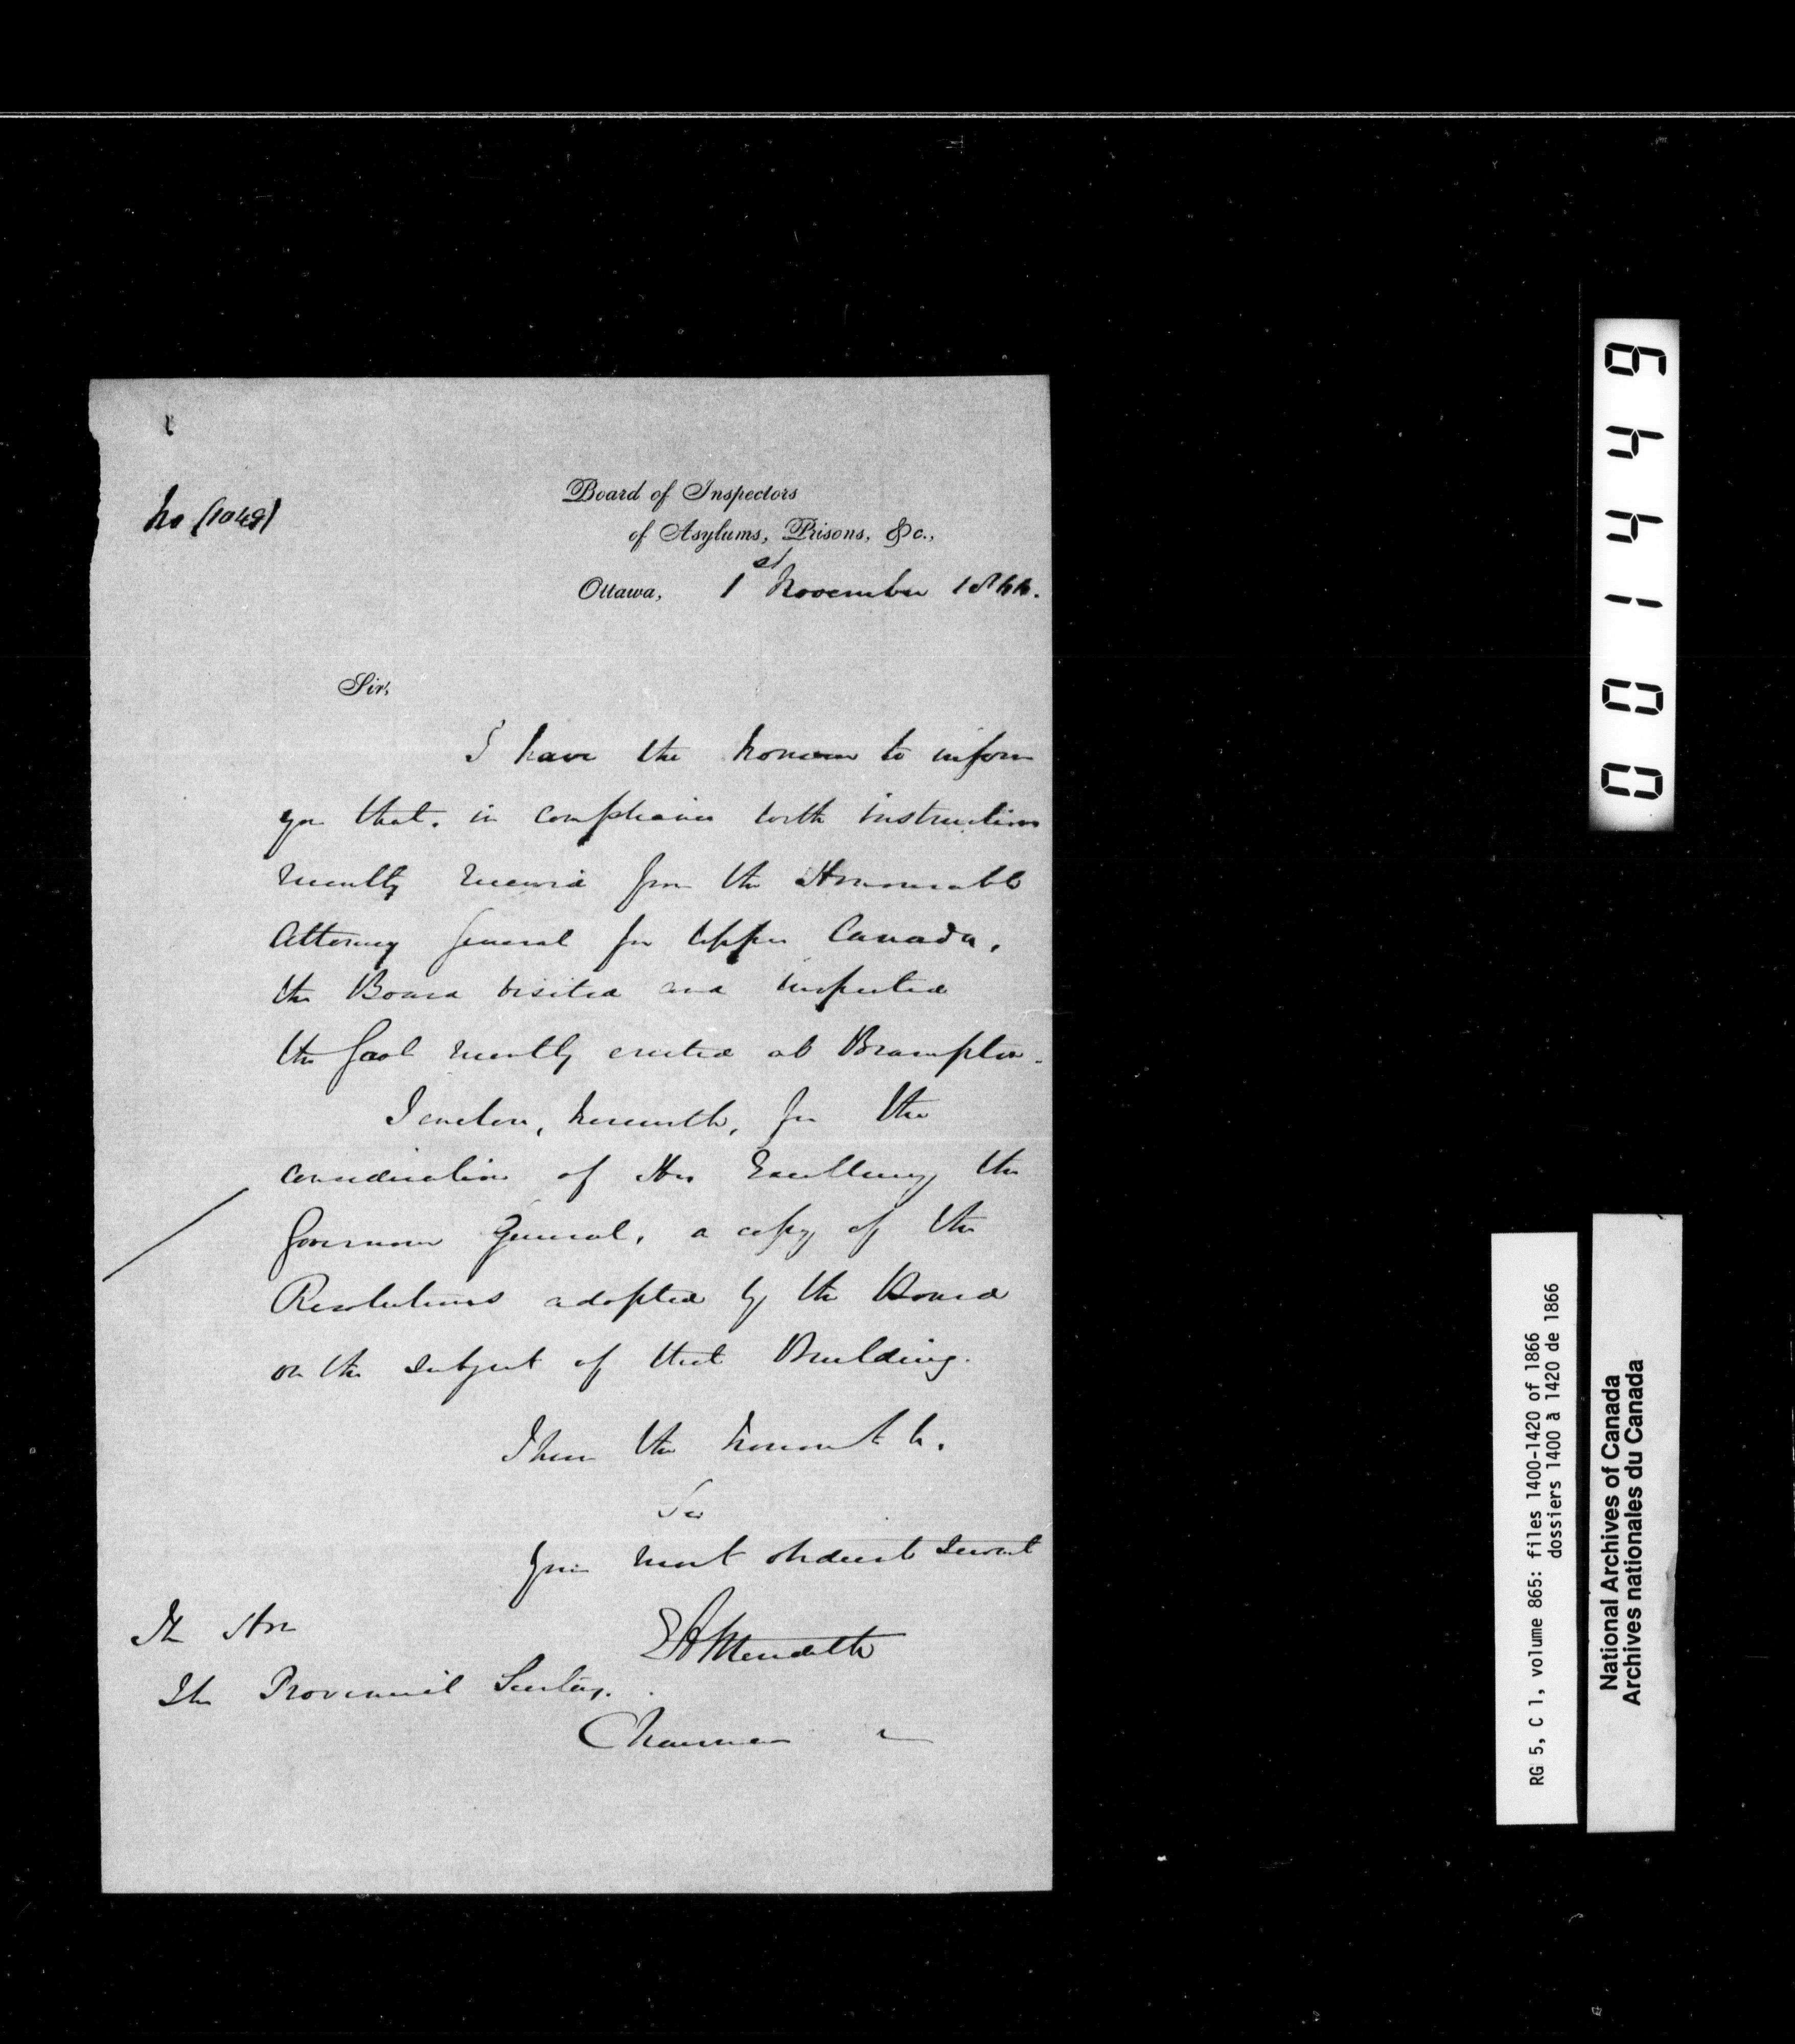 No (1049)
Board of Inspectors
of Asylums, Prisons, &c.,
Ottawa, 1st November 1866.
Sir,
I have the honour to inform
you that, in compliance with instructions
recently received from the Honourable
Attorney General for Upper Canada,
the Board visited and inspected
the Gaol recently erected at Brampton.
I enclose, herewith, for the
consideration of His Excellency the
Governor General, a copy of the
Resolutions adopted by the Board
on the subject of that Building.
I have the honour to be,
Sir
Your most obedient servant
E A Meredith
Chairman
The Hon
The Provincial Secretary.
004144 9
RG 5, C 1, volume 865: files 1400-1420 of 1866
dossiers 1400 à 1420 de 1866
National Archives of Canada
Archives nationales du Canada